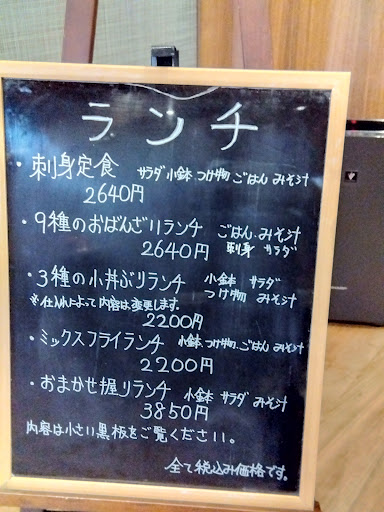 ランチ
・刺身定食 サラダ 小鉢 つけ物 ごはん みそ汁
2640円
・9種のおばんざいランチ ごはん みそ汁
2640円 刺身 サラダ
・3種の小丼ぶりランチ 小鉢 サラダ
つけ物 みそ汁
※仕入れによって内容は変更します。
2200円
・ミックスフライランチ 小鉢 つけ物 ごはん みそ汁
2200円
・おまかせ握りランチ 小鉢 サラダ みそ汁
3850円
内容は小さい黒板をご覧ください。
全て税込み価格です。